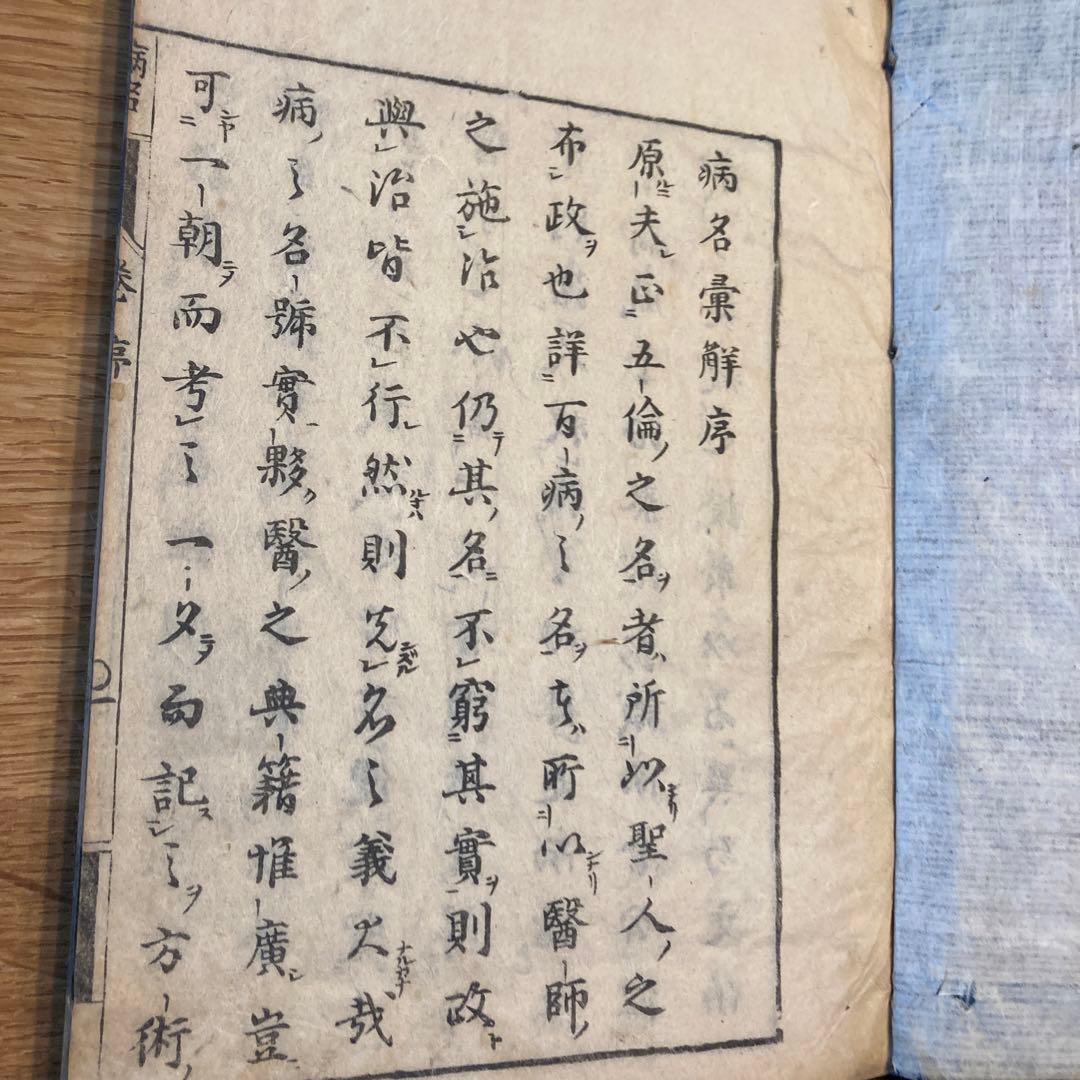 病名彙解序
原夫正五倫之名者所以聖人之
布政也詳百病之名者所以醫師
之施治也仍其名不窮其實則政
與治皆不行然則先名之義大哉
病之名號實夥醫之典籍惟廣豈
可一朝而考之一夕而記之方術
卷序